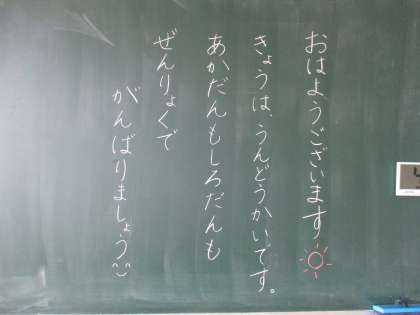 おはようございます
きょうは、うんどうかいです。
あかだんもしろだんも
ぜんりょくで
がんばりましょう